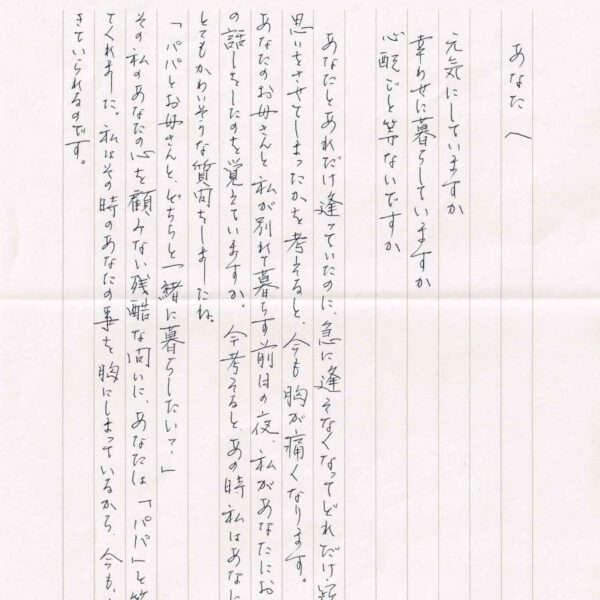 あなたへ
元気にしていますか
幸わせに暮らしていますか
心配ごと等ないですか
あなたとあれだけ逢っていたのに、急に逢えなくなってどれだけ
思いをさせてしまったかを考えると、今も胸が痛くなります。
あなたのお母さんと私が別れて暮らす前日の夜、私があなたにお
の話しをしたのを覚えていますか。今考えると、あの時私はあなたに
とてもかわいそうな質問をしましたね。
「パパとお母さんと、どちらと一緒に暮らしたい?」
その私のあなたの心を顧みない残酷な問いに、あなたは「パパ」と
てくれました。私はその時のあなたの事を胸にしまっているから、今も、
きていられるのです。